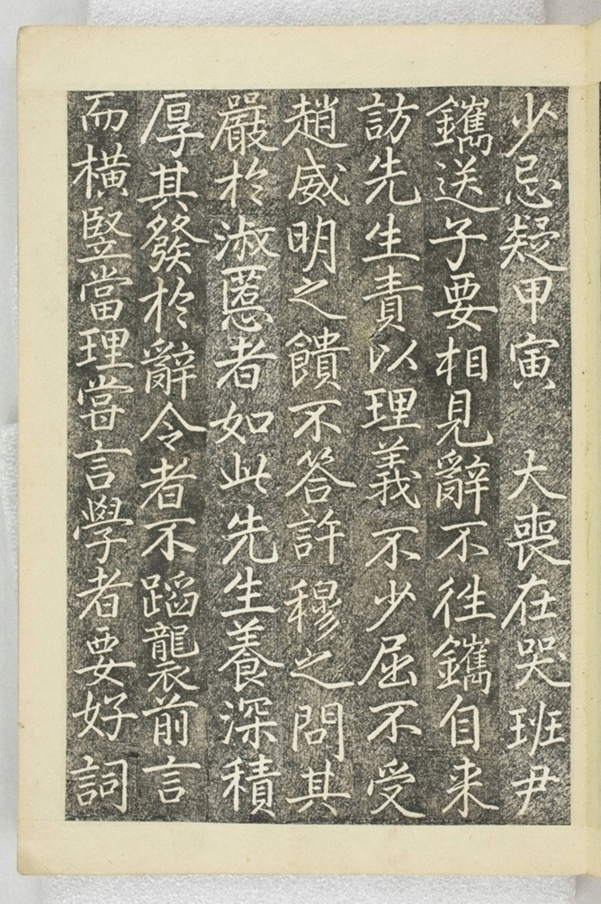 少忌疑甲寅　大喪在哭班尹
鑴送子要相見辭不往鑴自来
訪先生責以理義不少屈不受
趙威明之饋不答許穆之問其
嚴於淑慝者如此先生養深積
厚其發於辭令者不蹈襲前言
而橫竪當理嘗言學者要好詞